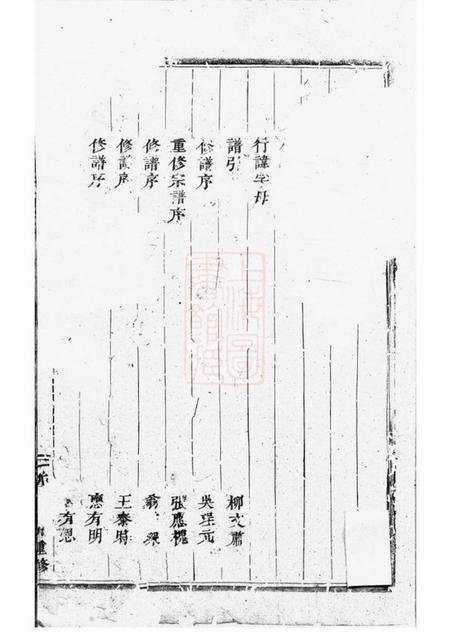 行諱字母
譜引 柳文肅
修譜序 吳堂元
重修宗譜序 張應槐
修譜序 翁 深
修譜序 王泰時
修譜序 應有明
有恩
重修
上海圖書館藏